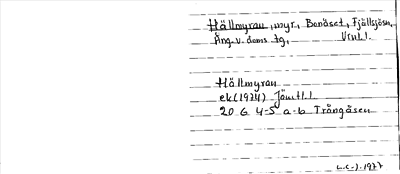 Hällmyran, myr, Bonäset, Fjällsjösn,
Ång. v. doms tg,
Hällmyran
ek (1974) Jämtl.l
20 G 4-5 a-b Trångåsen
1977